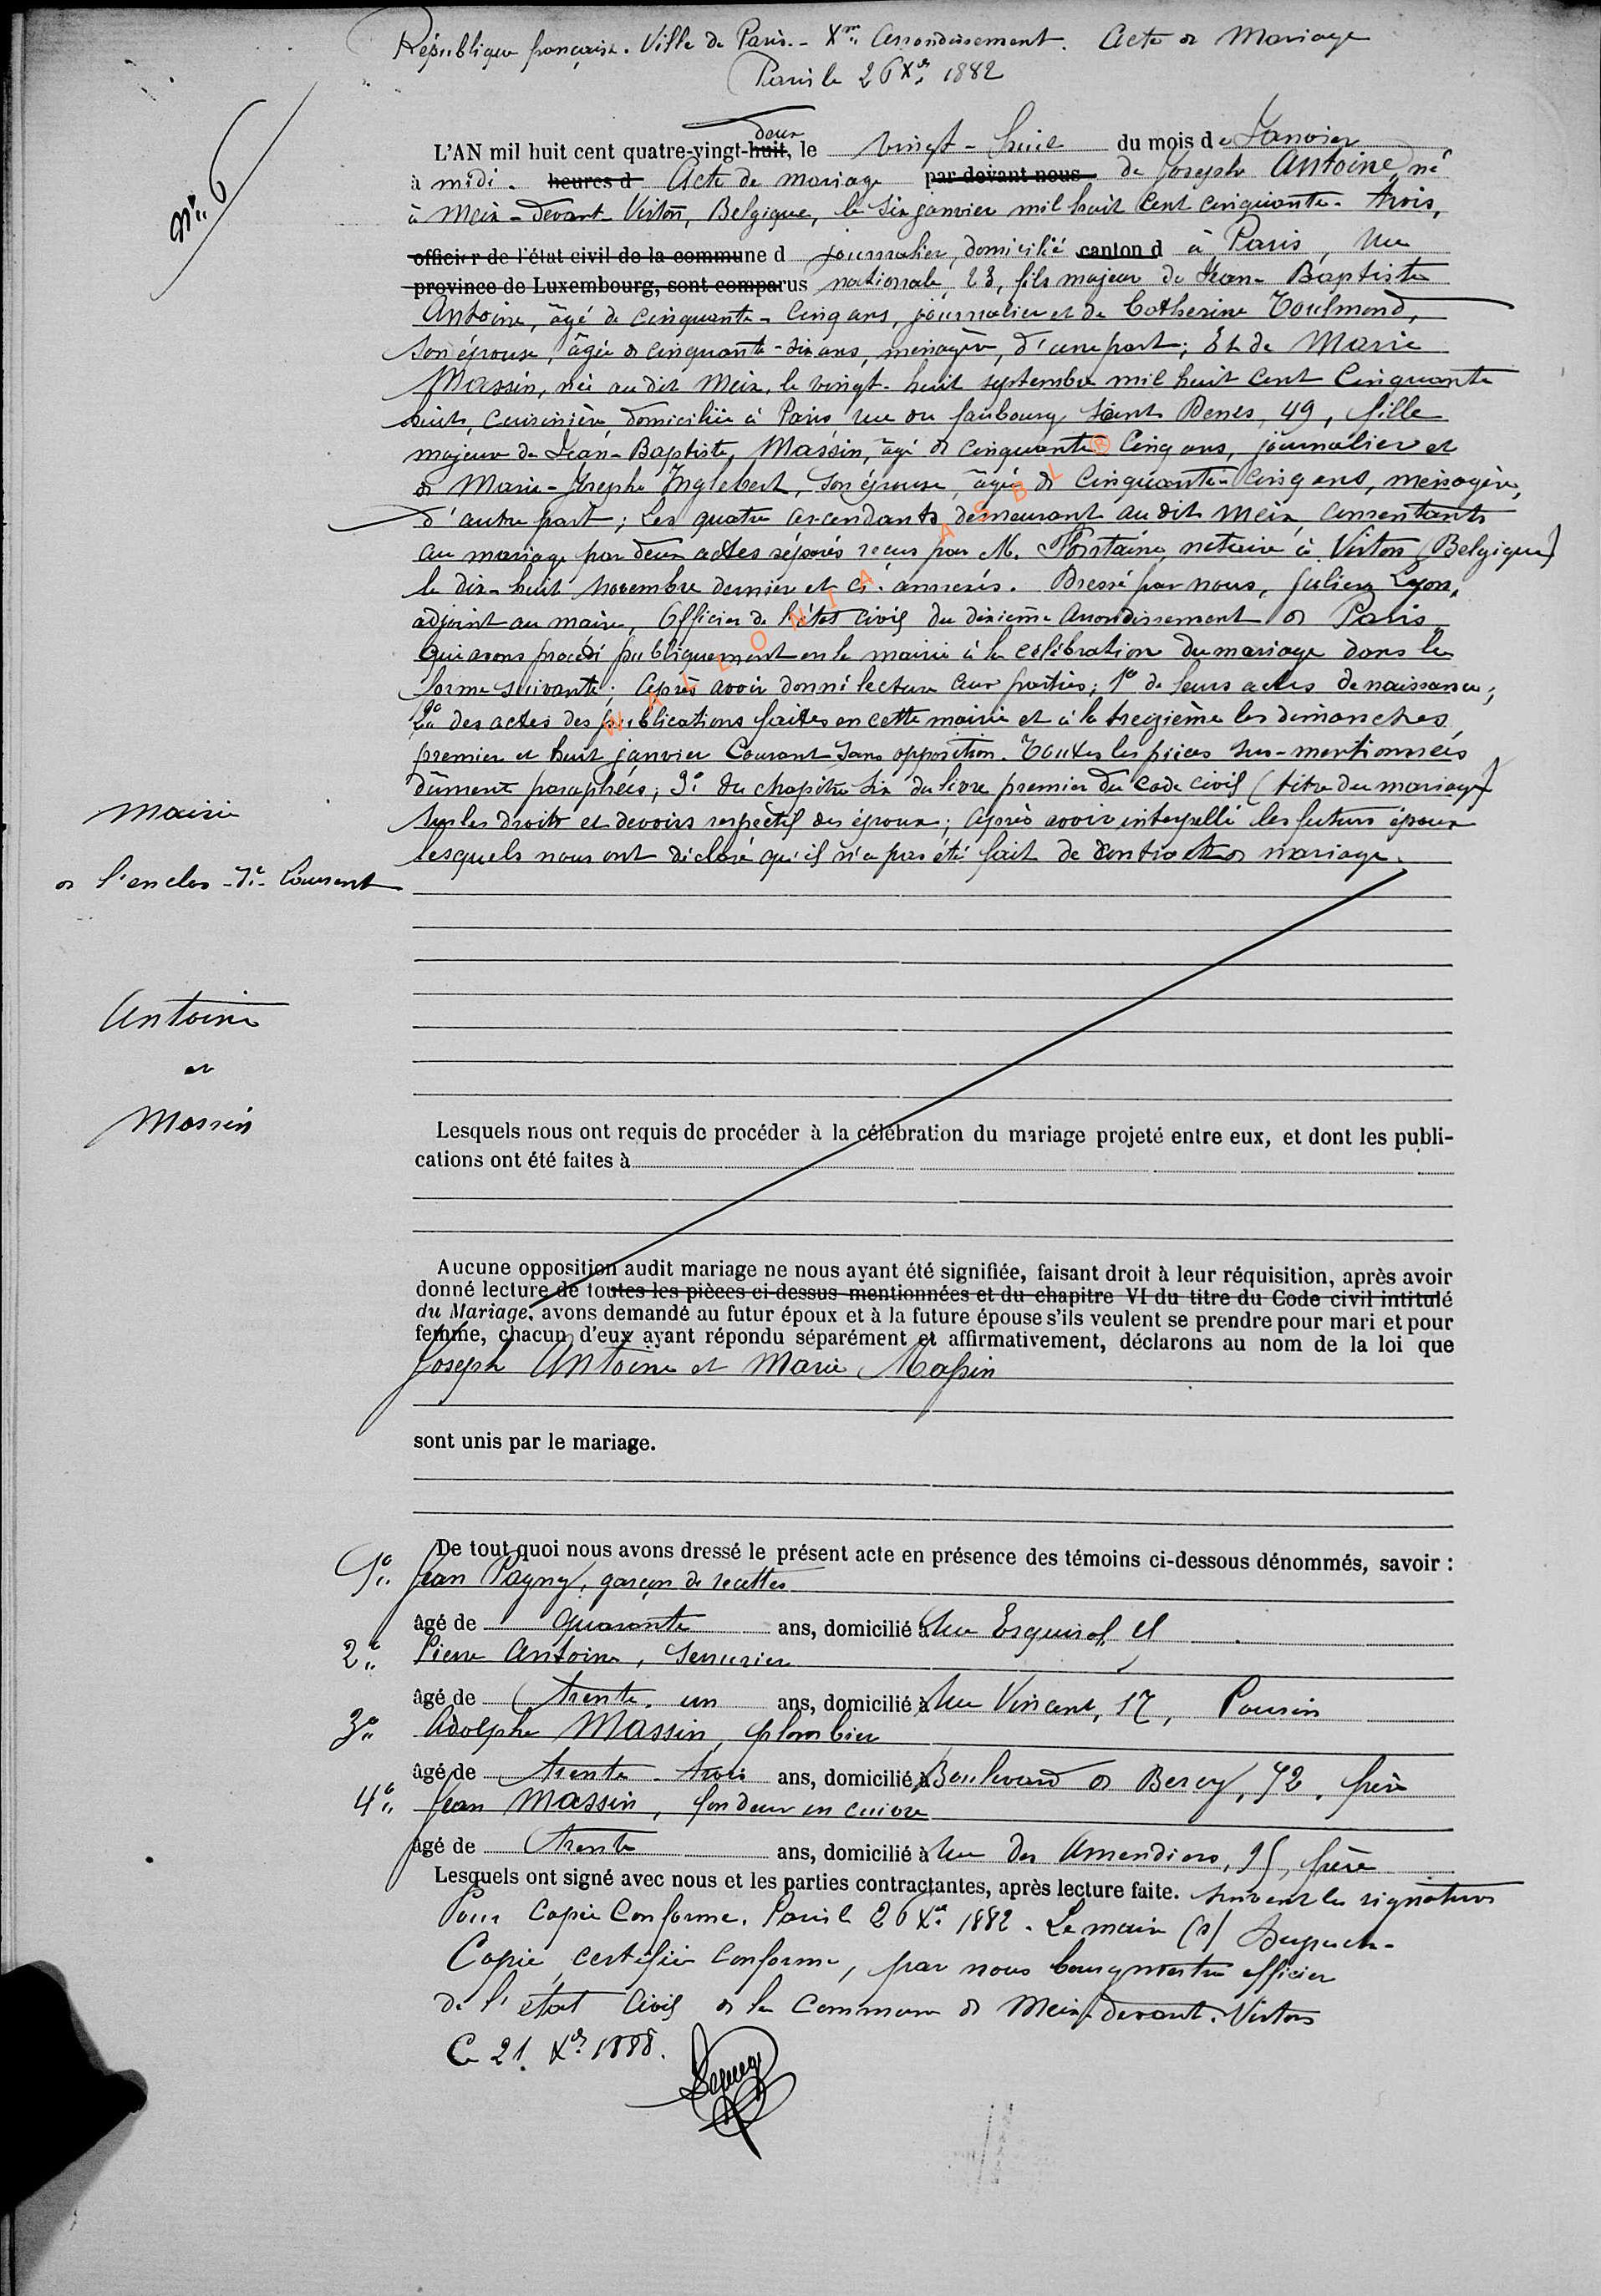 République française. Ville de Paris. - Xme Arrondissement. Acte de Mariage
Paris le 26 Xbre 1882
No. 6
deux
L'AN mil huit cent quatre-vingt-huit, le vingt-huit du mois de Janvier
à midi. heures d Acte de mariage par-devant nous de Joseph Antoine, né
à Meix-devant-Virton, Belgique, le six janvier mil huit cent cinquante-trois,
officier de l'état civil de la commune d journalier, domicilié canton d à Paris, rue
province de Luxembourg, sont comparus nationale, 23, fils majeur de Jean-Baptiste
Antoine, âgé de cinquante-cinq ans, journalier et de Catherine Toulmond,
son épouse, âgée de cinquante-six ans, ménagère, d'une part; Et de Marie
Massin, née au dit Meix, le vingt-huit septembre mil huit cent cinquante
huit, cuisinière, domiciliée à Paris, rue du faubourg Saint Denis, 49, fille
majeure de Jean-Baptiste, Massin, âgé de cinquante cinq ans, journalier et
de Marie-Josephe Inglebert, son épouse, âgée de cinquante-cinq ans, ménagère,
d'autre part; Les quatre ascendants demeurant au dit Meix, consentants
au mariage par deux actes séparés reçus par M. Fontaine, notaire à Virton (Belgique)
le dix-huit novembre dernier et ci-annexés. Dressé par nous, Julien Lyon,
adjoint au maire, Officier de l'état civil du dixième Arrondissement de Paris
qui avons procédé publiquement en la mairie à la célébration du mariage dans la
forme suivante: Après avoir donné lecture aux parties; 1o de leurs actes de naissance;
2o des actes des publications faites en cette mairie et à la treizième les dimanches
premier et huit janvier courant sans opposition. Toutes les pièces sus-mentionnées
dûment paraphées; 3o du chapitre six du livre premier du Code civil (titre du mariage)
sur les droits et devoirs respectifs des époux; Après avoir interpellé les futurs époux
lesquels nous ont déclaré qu'il n'a pas été fait de contrat de mariage.
WALLONIA ASBL ®
Mairie
de l'enclos-St-Laurent
Antoine
et
Massin
Lesquels nous ont requis de procéder à la célébration du mariage projeté entre eux, et dont les publi-
cations ont été faites à
Aucune opposition audit mariage ne nous ayant été signifiée, faisant droit à leur réquisition, après avoir
donné lecture de toutes les pièces ci-dessus mentionnées et du chapitre VI du titre du Code civil intitulé
du Mariage, avons demandé au futur époux et à la future épouse s'ils veulent se prendre pour mari et pour
femme, chacun d'eux ayant répondu séparément et affirmativement, déclarons au nom de la loi que
Joseph Antoine et Marie Massin
sont unis par le mariage.
De tout quoi nous avons dressé le présent acte en présence des témoins ci-dessous dénommés, savoir :
1o Jean Pagny, garçon de recettes
âgé de quarante ans, domicilié à rue Esquirol,
2o Pierre Antoine, serrurier
âgé de trente-un ans, domicilié à rue Vincent, 17, Cousin
3o Adolphe Massin, plombier
âgé de trente-trois ans, domicilié à Boulevard de Bercy, 72, frère
4o Jean Massin, fondeur en cuivre
âgé de trente ans, domicilié à rue des Amandiers, 95, frère
Lesquels ont signé avec nous et les parties contractantes, après lecture faite. suivent les signatures
Pour Copie Conforme. Paris le 26 Xbre 1882. Le maire (s)
Copie certifiée conforme, par nous bourgmestre officier
de l'état civil de la commune de Meix-devant-Virton
Ce 21 Xbre 1888.